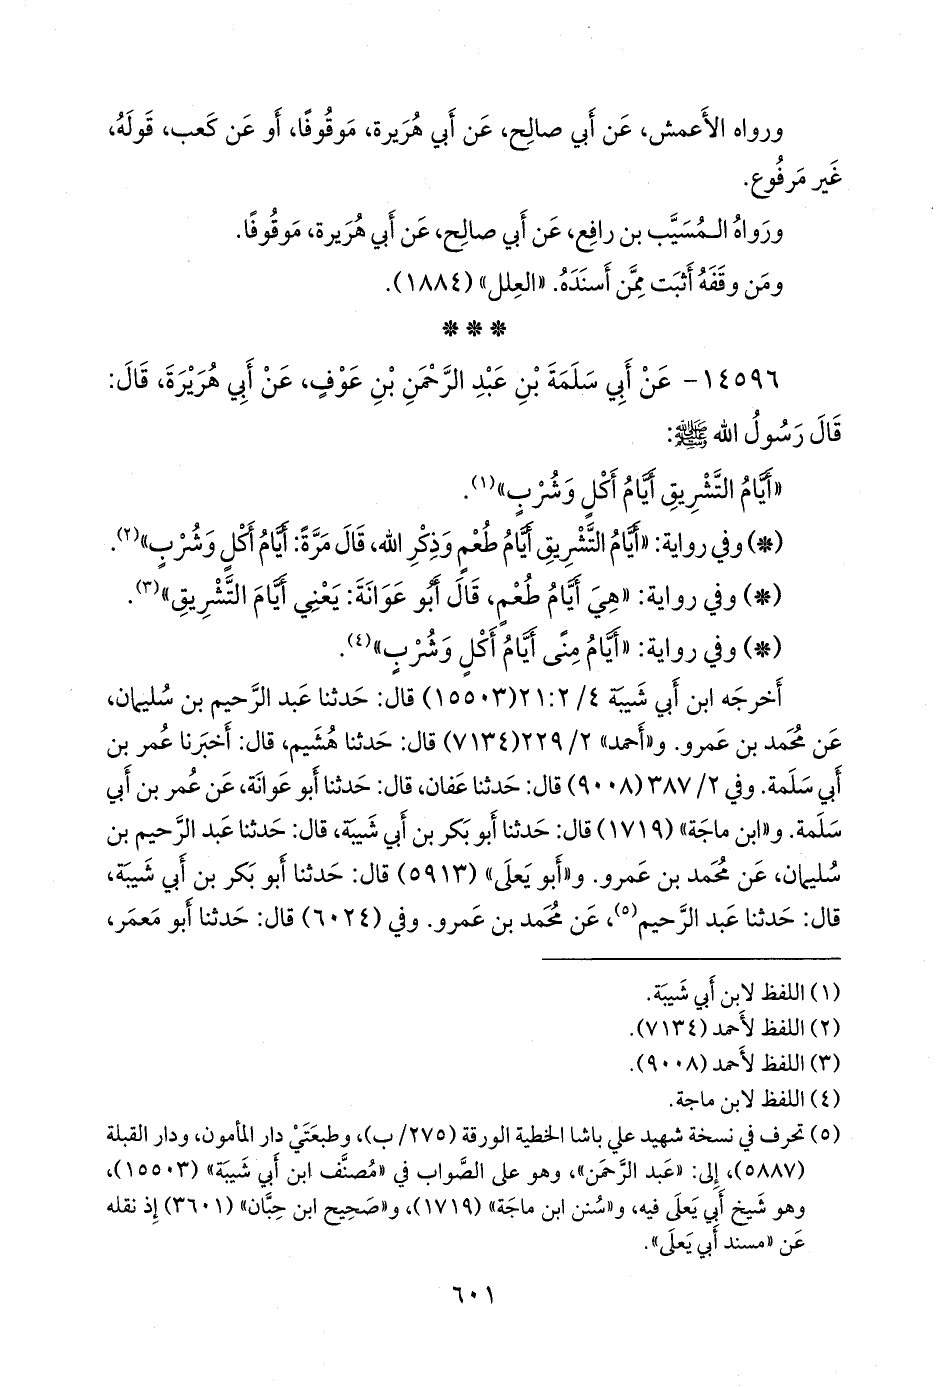 ورواه الأَعمش، عَن أَبي صالِح، عَن أَبي هُرَيرة، مَوقُوفًا، أَو عَن كَعب، قَولَهُ،
غَير مَرفُوع.
ورَواهُ الـمُسَيَّب بن رافِع، عَن أَبي صالِح، عَن أَبي هُرَيرة، مَوقُوفًا.
ومَن وقَفَهُ أَثبَت مِمَّن أَسنَدَهُ. «العِلل» (١٨٨٤).
* * *
١٤٥٩٦ - عَنْ أَبِي سَلَمَةَ بْنِ عَبْدِ الرَّحْمَنِ بْنِ عَوْفٍ، عَنْ أَبِي هُرَيْرَةَ، قَالَ:
قَالَ رَسُولُ الله ﷺ:
«أَيَّامُ التَّشْرِيقِ أَيَّامُ أَكْلٍ وَشُرْبٍ»(١).
(*) وفي رواية: «أَيَّامُ التَّشْرِيقِ أَيَّامُ طُعْمٍ وَذِكْرِ الله، قَالَ مَرَّةً: أَيَّامُ أَكْلٍ وَشُرْبٍ»(٢).
(*) وفي رواية: «هِيَ أَيَّامُ طُعْمٍ، قَالَ أَبُو عَوَانَةَ: يَعْنِي أَيَّامَ التَّشْرِيقِ»(٣).
(*) وفي رواية: «أَيَّامُ مِنًى أَيَّامُ أَكْلٍ وَشُرْبٍ»(٤).
أَخرجَه ابن أَبي شَيبَة ٤/ ٢١:٢(١٥٥٠٣) قال: حَدثنا عَبد الرَّحيم بن سُليمان،
عَن مُحمد بن عَمرو. و«أَحمد» ٢/ ٢٢٩(٧١٣٤) قال: حَدثنا هُشَيم، قال: أَخبَرنا عُمر بن
أَبي سَلَمة. وفي ٢/ ٣٨٧ (٩٠٠٨) قال: حَدثنا عَفان، قال: حَدثنا أَبو عَوانَة، عَن عُمر بن أَبي
سَلَمة. و«ابن ماجَة» (١٧١٩) قال: حَدثنا أَبو بَكر بن أَبي شَيبَة، قال: حَدثنا عَبد الرَّحيم بن
سُليمان، عَن مُحمد بن عَمرو. و«أَبو يَعلَى» (٥٩١٣) قال: حَدثنا أَبو بَكر بن أَبي شَيبَة،
قال: حَدثنا عَبد الرَّحيم(٥)، عَن مُحمد بن عَمرو. وفي (٦٠٢٤) قال: حَدثنا أَبو مَعمَر،
(١) اللفظ لابن أَبي شَيبَة.
(٢) اللفظ لأَحمد (٧١٣٤).
(٣) اللفظ لأَحمد (٩٠٠٨).
(٤) اللفظ لابن ماجة.
(٥) تحرف في نسخة شهيد علي باشا الخطية الورقة (٢٧٥/ ب)، وطبعَتَيْ دار المأمون، ودار القبلة
(٥٨٨٧)، إِلى: «عَبد الرَّحمَن»، وهو على الصَّواب في «مُصنَّف ابن أَبي شَيبَة» (١٥٥٠٣)،
وهو شَيخ أَبي يَعلَى فيه، و«سُنن ابن ماجَة» (١٧١٩)، و«صَحيح ابن حِبَّان» (٣٦٠١) إِذ نقله
عَن «مسند أَبي يَعلَى».
٦٠١